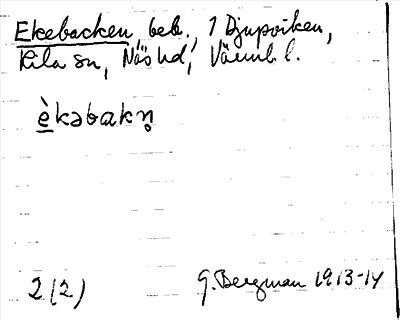 Ekebacken, beb., 1 Djupviken,
Kila sn, Näs hd, Värml l.
èkəbakn̥
2 (2)
G. Bergman 1913-14